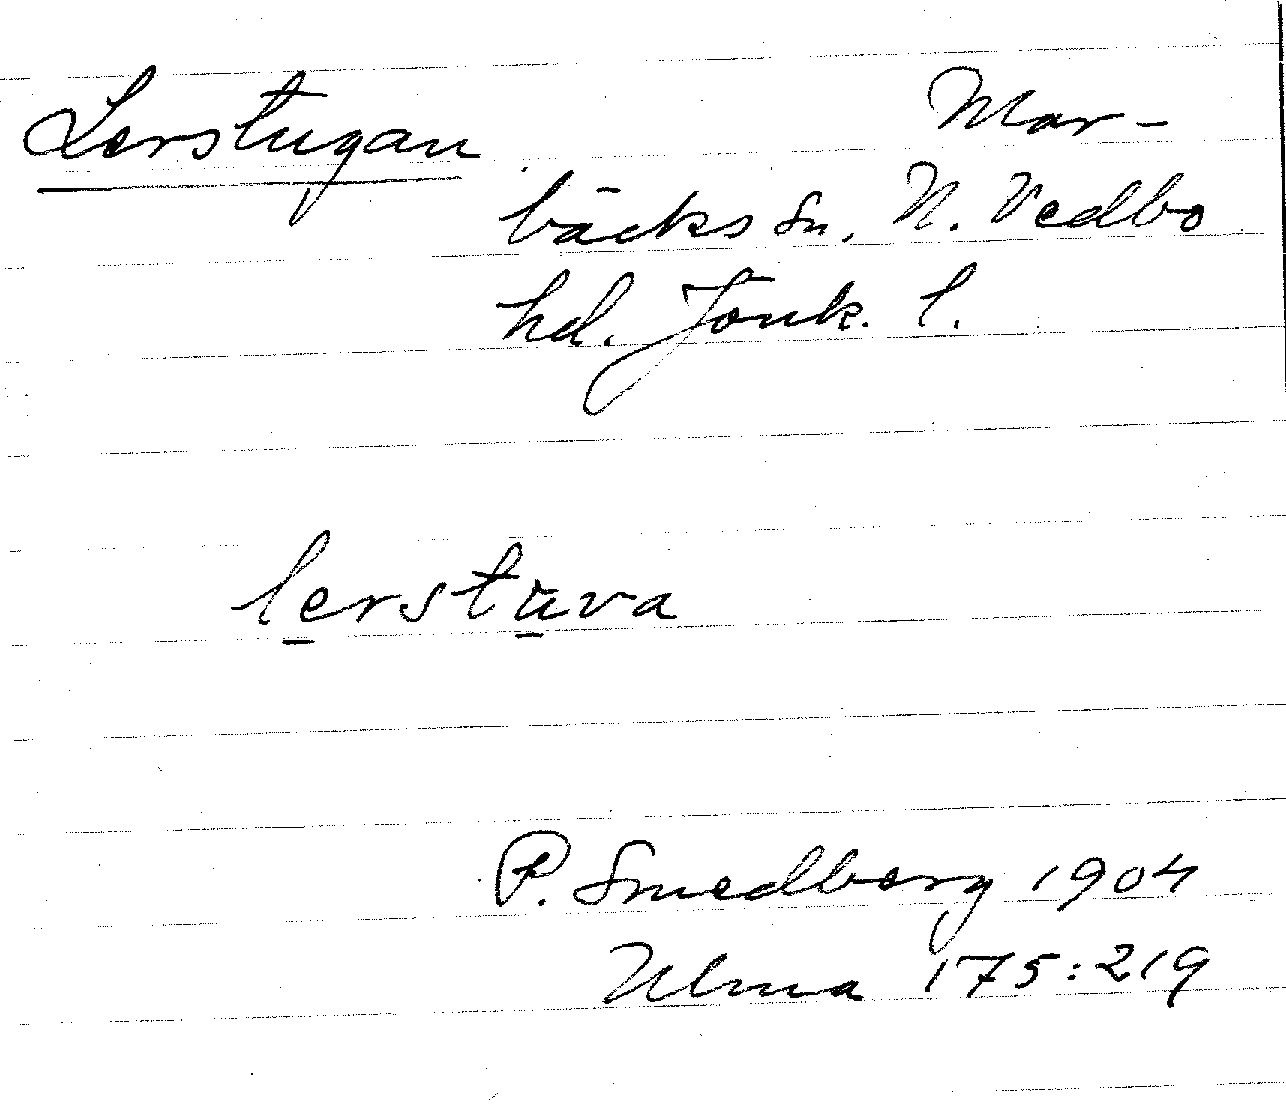 Lerstugan Mar-
bäcks sn, N. Vedbo
hd. Jönk. l.
lerstuva
P. Smedberg 1904
Ulma 175:219